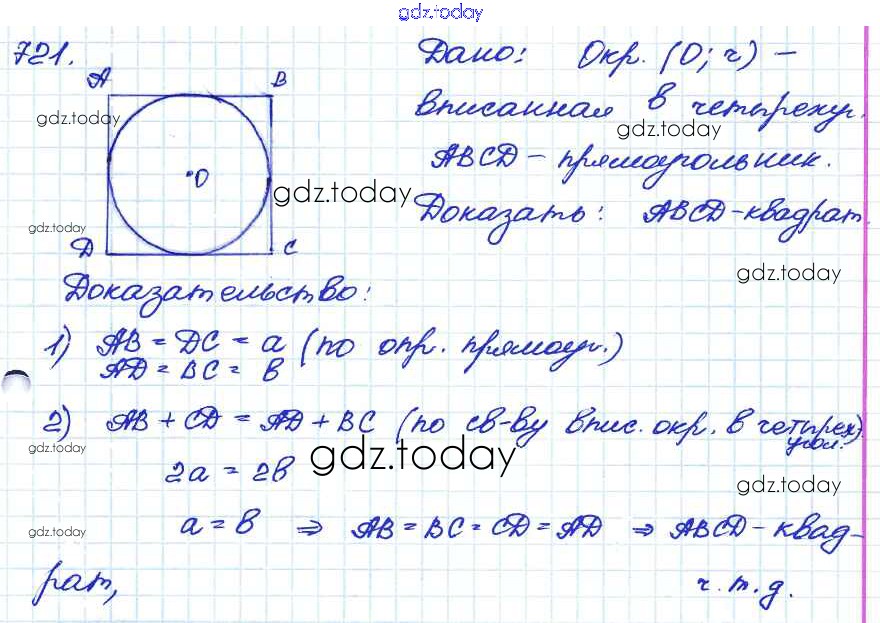 gdz.today
721.
Дано: Окр. (О; r) –
вписанная в четыреху.
ABCD – прямоугольник.
Доказать: ABCD – квадрат
A B
O
D C
gdz.today
gdz.today
gdz.today
gdz.today
gdz.today
Доказательство:
1) AB = DC = a (по опр. прямоуг.)
AD = BC = в
2) AB + CD = AD + BC (по св-ву впис. окр. в четырех)
угол.
gdz.today
gdz.today
2a = 2в
gdz.today
a = в ⇒ AB = BC = CD = AD ⇒ ABCD – квад-
gdz.today
рат, ч.т.д.